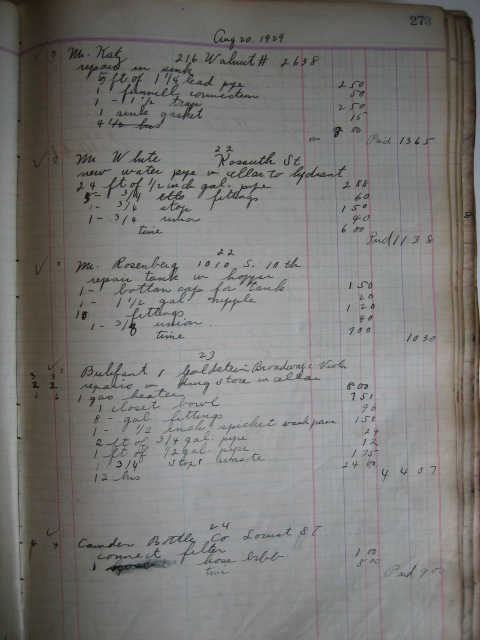 273
Aug 20, 1929
Mr. Katz 216 Walnut # 2638
repairs in sink
5 ft of 1 1/4 lead pipe 2 50
1 funnell connection 50
1 - 1 1/2 trap 2 50
1 sink gasket 15
4 1/2 hrs 8 00
Paid 13 65
22
Mr White Kossuth St
new water pipe in cellar to hydrant
24 ft of 1/2 inch gal. pipe 2 88
5 - 3/4 fittings 60
1 - 3/4 stop 1 50
1 - 3/4 union 40
time 6 00
Paid 11 38
22
Mr. Rosenberg 1010 S. 10th
repair tank in hopper
1 - bottom cap for tank 1 50
1 - 1 1/2 gal. nipple 20
10 fittings 1 20
1 - 3/8 union 40
time 7 00
10 30
23
Bulifant & Goldstein Broadway & Viola
repairs in drug store in cellar
1 gas heater 8 00
1 closet bowl 7 50
8 - gal fittings 96
1 - 1/2 inch spicket wash pave 1 50
2 ft of 3/4 gal. pipe 24
1 ft of 1/2 gal. pipe 12
1 3/4 stop & waste 1 75
12 hrs 24 00
4 4 07
24
Camden Bottle Co Locust St
connect filter
1 hose bibb 1 00
time 8 00
Paid 9 00